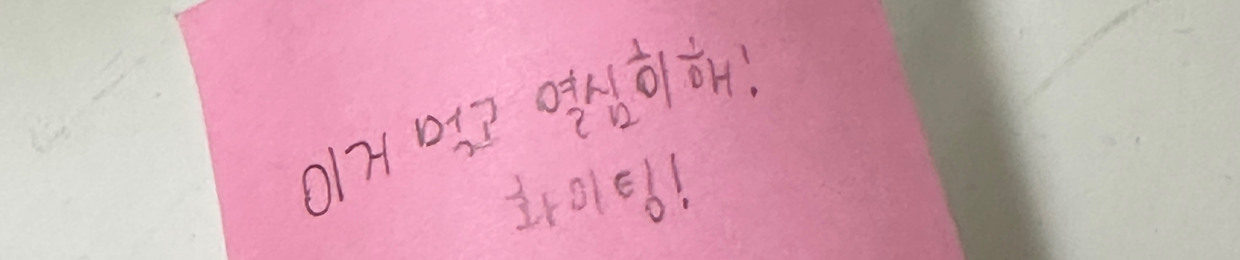 이거 먹고 열심히해!
화이팅!